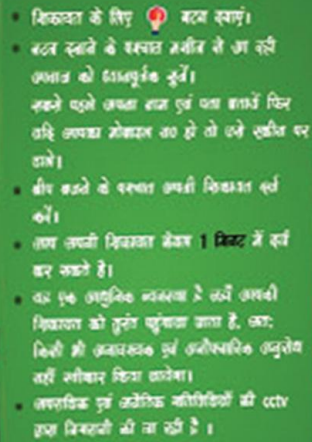 • शिकायत के लिए बटन दबाएं।
• बटन दबाने के पश्चात मशीन से आ रही
आवाज को ध्यानपूर्वक सुनें।
सबसे पहले अपना नाम एवं पता बतायें फिर
यदि आपका मोबाइल न० हो तो उसे स्क्रीन पर
डालें।
• बीप बजने के पश्चात अपनी शिकायत दर्ज
करें।
• आप अपनी शिकायत केवल 1 मिनट में दर्ज
कर सकते है।
• यह एक आधुनिक व्यवस्था है जहाँ आपकी
शिकायत को तुरंत पहुंचाया जाता है, अतः
किसी भी अनावश्यक एवं अनौपचारिक अनुरोध
नहीं स्वीकार किया जायेगा।
• अपराधिक एवं अनैतिक गतिविधियों की cctv
द्वारा निगरानी की जा रही है ।